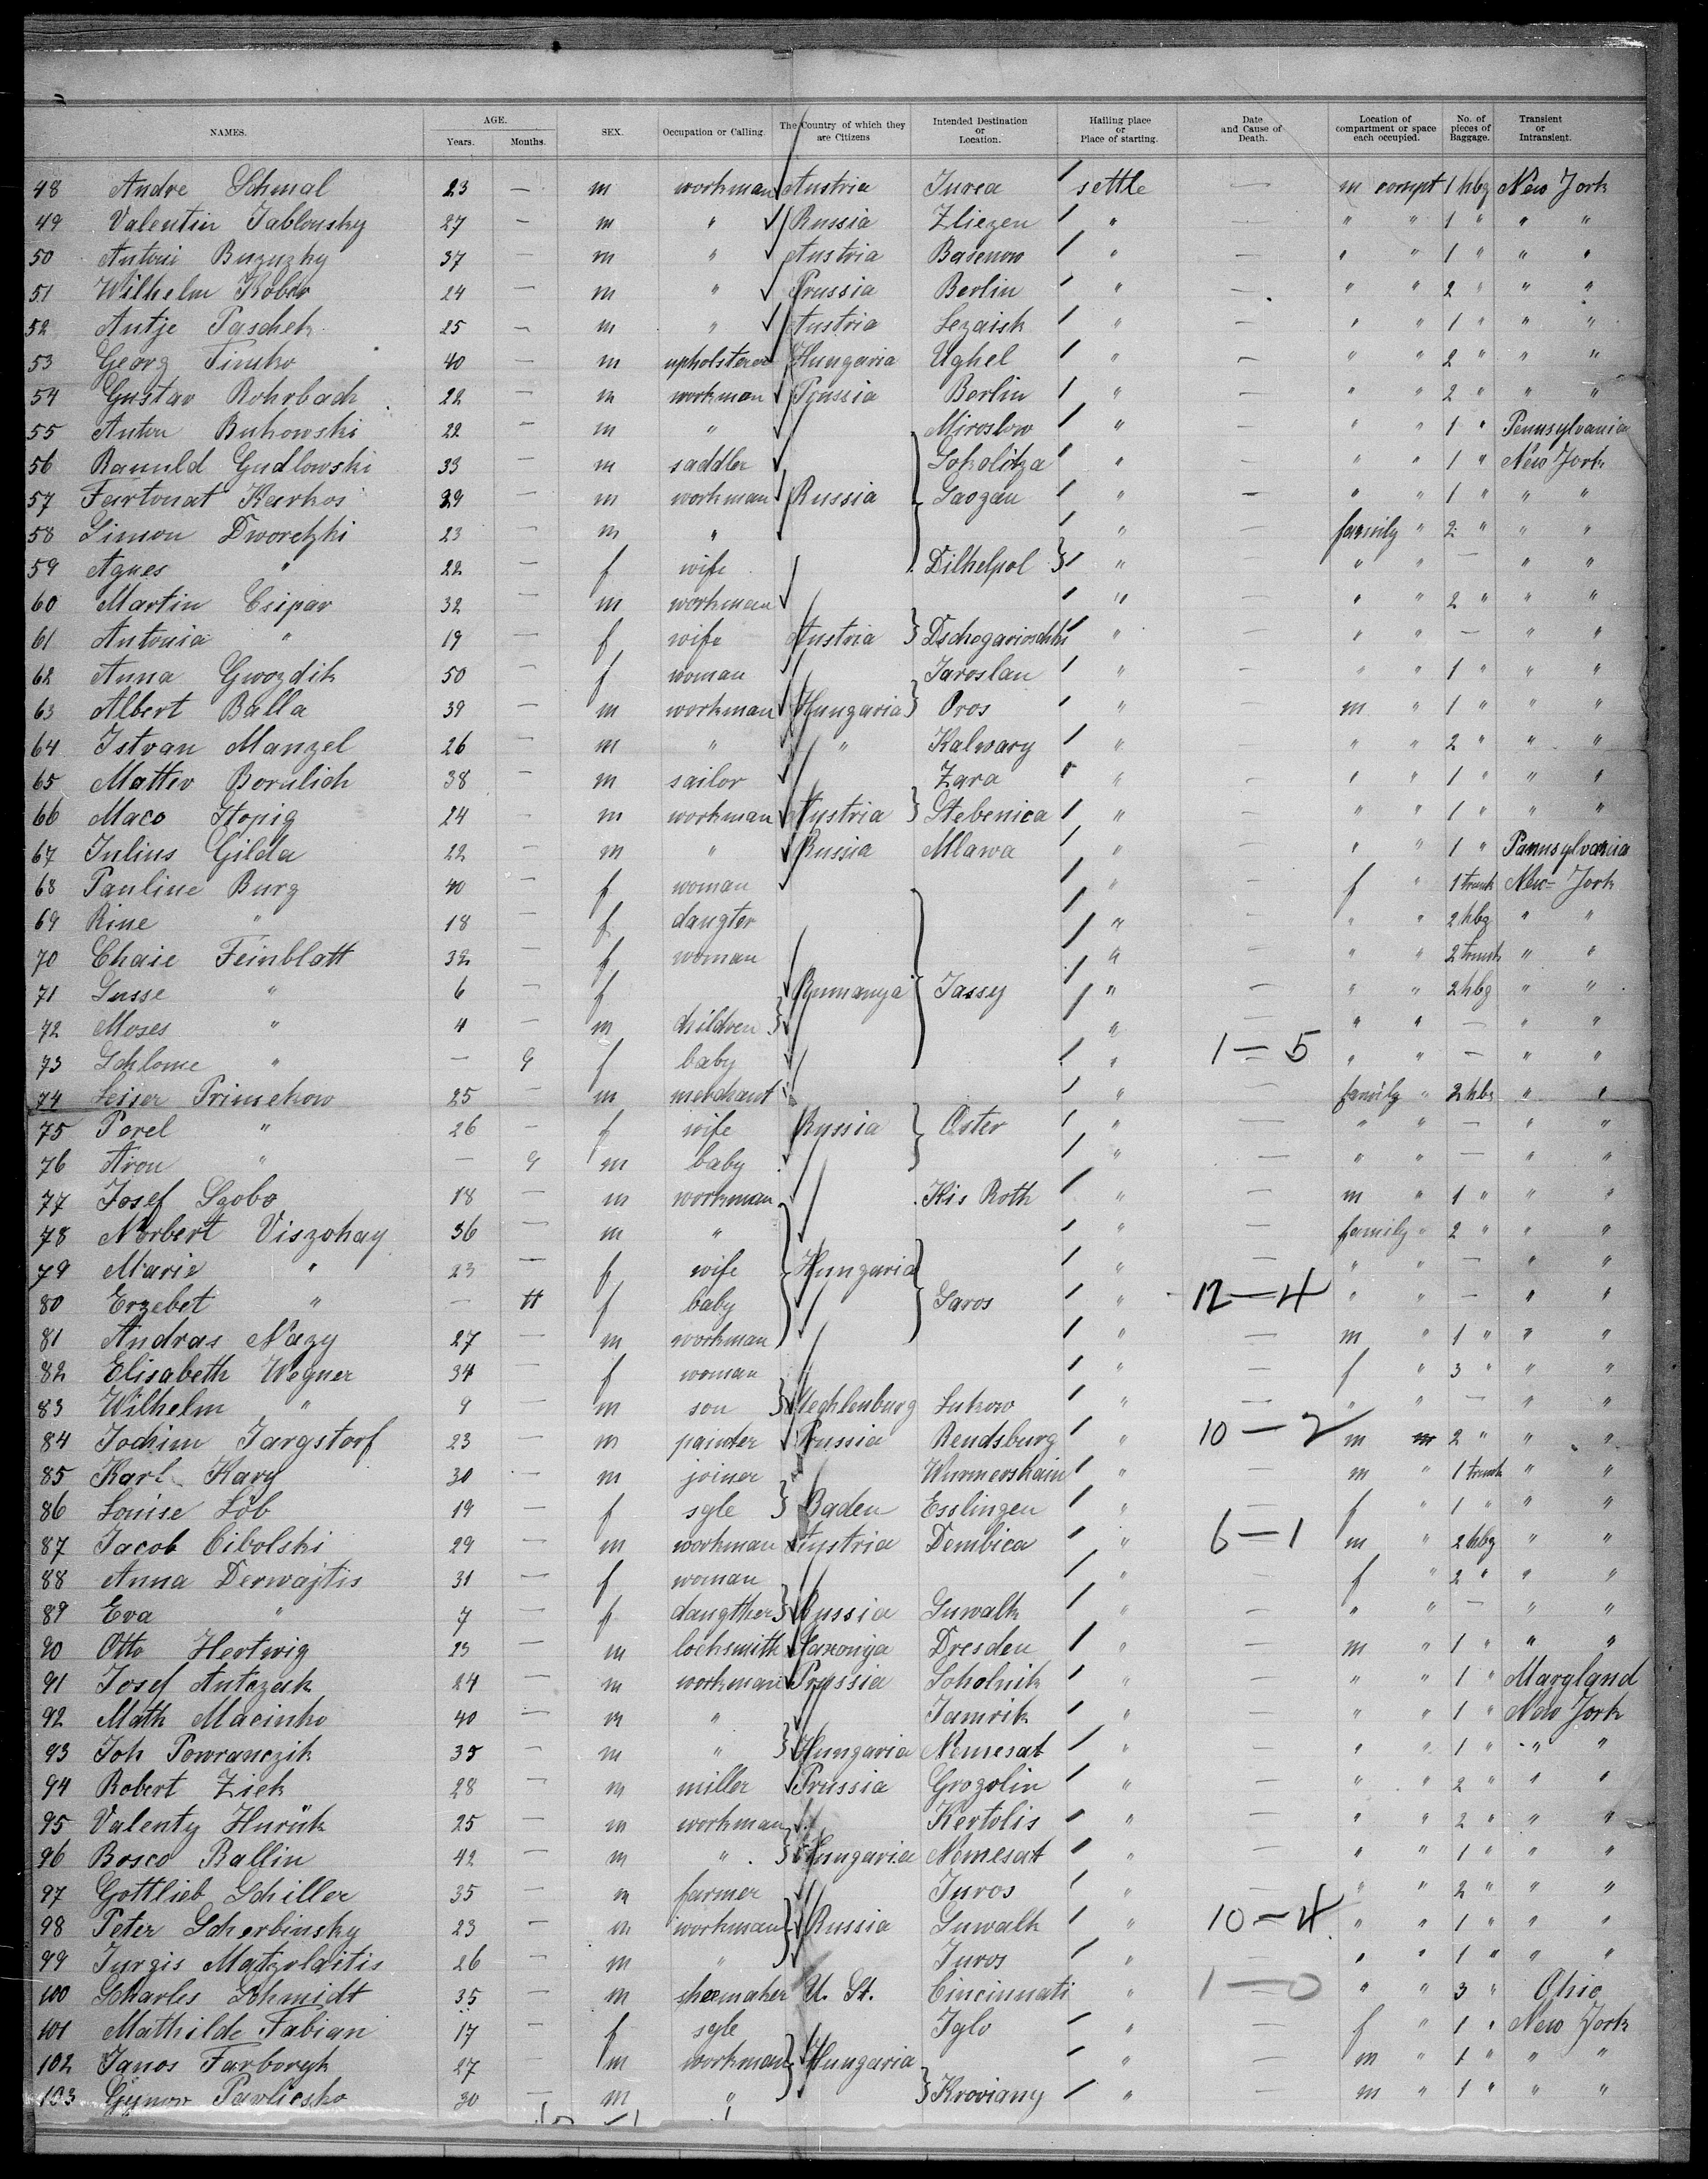 NAMES. AGE. Years. Months. SEX. Occupation or Calling. The Country of which they are Citizens Intended Destination or Location. Hailing place or Place of starting. Date and Cause of Death. Location of compartment or space each occupied. No. of pieces of Baggage. Transient or Intransient.
48 Andre Schmal 23 — m workman Austria Turea settle — m compt 1 hbg New York
49 Valentin Jablonsky 27 — m " Russia Zliezen " — " " 1 " " "
50 Antoni Buzuzky 37 — m " Austria Basenow " — " " 1 " " "
51 Wilhelm Kober 24 — m " Prussia Berlin " — " " 2 " " "
52 Antje Paschek 25 — m " Austria Lezaisk " — " " 1 " " "
53 Georg Timko 40 — m upholsterer Hungaria Ughel " — " " 2 " "
54 Gustav Rohrbach 22 — m workman Prussia Berlin " — " " 2 " " "
55 Anton Bukowski 22 — m " Miroslow " — " " 1 " Pennsylvania
56 Ranuld Gudlowski 33 — m saddler Sokolitza " — " " 1 " New York
57 Fartonat Karkos 29 — m workman Russia Saozan " — " " 1 " " "
58 Simon Dworetzki 23 — m " " — family " 2 " " "
59 Agnes " 22 — f wife Dilhelpol " — " " — " "
60 Martin Csipar 32 — m workman " — " " 2 " " "
61 Antonia " 19 — f wife Austria Dschogarioschki " — " " — " "
62 Anna Gwozdik 50 — f woman Jaroslau " — " " 1 " " "
63 Albert Balla 39 — m workman Hungaria Oros " — m " 1 " " "
64 Istvan Manzel 26 — m " " Kalwary " — " " 2 " " "
65 Matteo Bornlich 38 — m sailor Zara " — " " 1 " " "
66 Maco Stopig 24 — m workman Austria Stebenica " — " " 1 " " "
67 Julius Gilda 22 — m " Russia Mlawa " — " " 1 " Pannsylvania
68 Pauline Burg 40 — f woman " — f " 1 trunk New-York
69 Rine " 18 — f daugter " — " " 2 hbg " "
70 Chaie Feinblatt 32 — f woman " — " " 2 trunk " "
71 Susse " 6 — f Rumanya Jassy " — " " 2 hbg " "
72 Moses " 4 — m children " — " " — " "
73 Schlome " — 9 f baby " 1—5 " " — " "
74 Leiser Primekow 25 — m merchant " — family " 2 hbg " "
75 Perel " 26 — f wife Russia Oster " — " " — " "
76 Aron " — 9 m baby " — " " — " "
77 Josef Szobo 18 — m workman Kis Roth " — m " 1 " " "
78 Norbert Viszokay 36 — m " " — family " 2 " " "
79 Marie " 23 — f wife Hungaria " — " " — " "
80 Erzebet " — 11 f baby Saros " 12—4 " " — " "
81 Andras Nagy 27 — m workman " — m " 1 " " "
82 Elisabeth Wegner 34 — f woman " — f " 3 " " "
83 Wilhelm " 9 — m son Mecklenburg Lukow " — " " — " "
84 Jochim Jargstorf 23 — m painter Prussia Rendsburg " 10—2 m m 2 " " "
85 Karl Karg 30 — m joiner Wurmershain " — m " 1 trunk " "
86 Louise Löb 19 — f sgle Baden Esslingen " — f " 1 " " "
87 Jacob Cibolski 29 — m workman Austria Dembica " 6—1 m " 2 hbg " "
88 Anna Derwajtis 31 — f woman " — f " 2 " " "
89 Eva " 7 — f daugther Russia Suwalk " — " " — " "
90 Otto Hertwig 23 — m locksmith Saxonya Dresden " — m " 1 " " "
91 Josef Antczak 24 — m workman Prussia Scholnik " — " " 1 " Maryland
92 Math Macinko 40 — m " Jamrik " — " " 1 " New York
93 Joh Powranczik 35 — m " Hungaria Nemesat " — " " 1 " " "
94 Robert Ziek 28 — m miller Prussia Grozolin " — " " 2 " " "
95 Valenty Hurük 25 — m workman Kertolis " — " " 2 " " "
96 Bosco Ballin 42 — m " Hungaria Nemesat " — " " 1 " " "
97 Gottlieb Schiller 35 — m farmer Juros " — " " 2 " " "
98 Peter Scherbinsky 23 — m workman Russia Suwalk " 10—4 " " 1 " " "
99 Jurgis Matzolaitis 26 — m " Juros " — " " 1 " " "
100 Scharles Schmidt 35 — m shoemaker U. St. Cincinnati " 1—0 " " 3 " Ohio
101 Mathilde Fabian 17 — f sgle Iglo " — f " 1 " New York
102 Janos Farboryk 27 — m workman Hungaria " — m " 1 " " "
103 Gynow Pawlicsko 30 — m " Kroviany " — m " 1 " " "